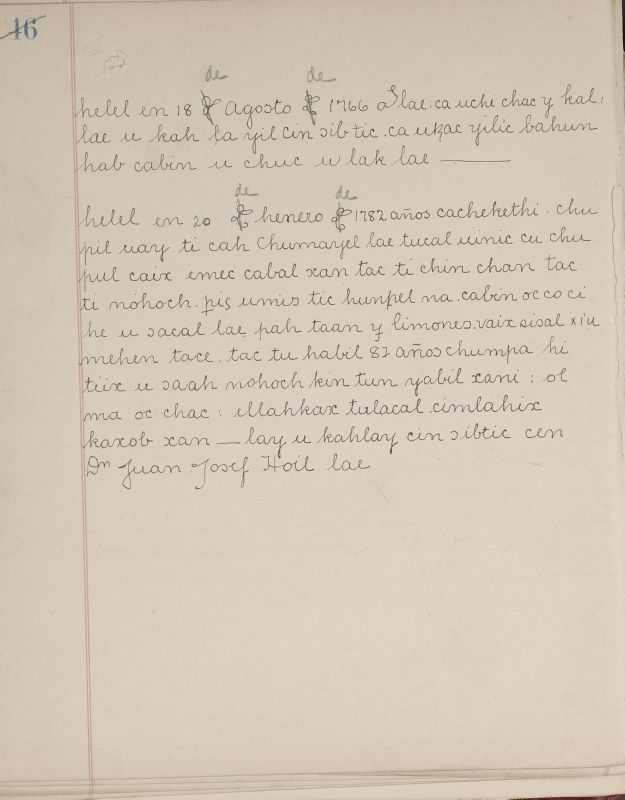 46
de de
helel en 18 de Agosto de 1766 aslae: ca uchi chac y kal:
lae u kah la yil cin ɔib tic . ca uꞩac yilic bahun
hab cabin u chuc u lak lae ———
de de
helel en 20 de henero de 1782 años cachekethi . chu
pil uay ti cah Chumayel lae tucal uinic cu chu
pul caix emec cabal xan tac ti chin chan tac
ti nohoch . piꞩ umis tic hunpel na . cabin oc co ci
he u ɔacal lae pah taan y limones . vaix sisal xiu
mehen tace . tac tu habil 87 años chumpa hi
tiix u ɔaah nohoch kin tun yabil xani : ol
ma oc chac : illahkax tulacal . cimlahix
kaxob xan — lay u kahlay cin ɔibtic cen
Dn Juan Josef Hoil lae